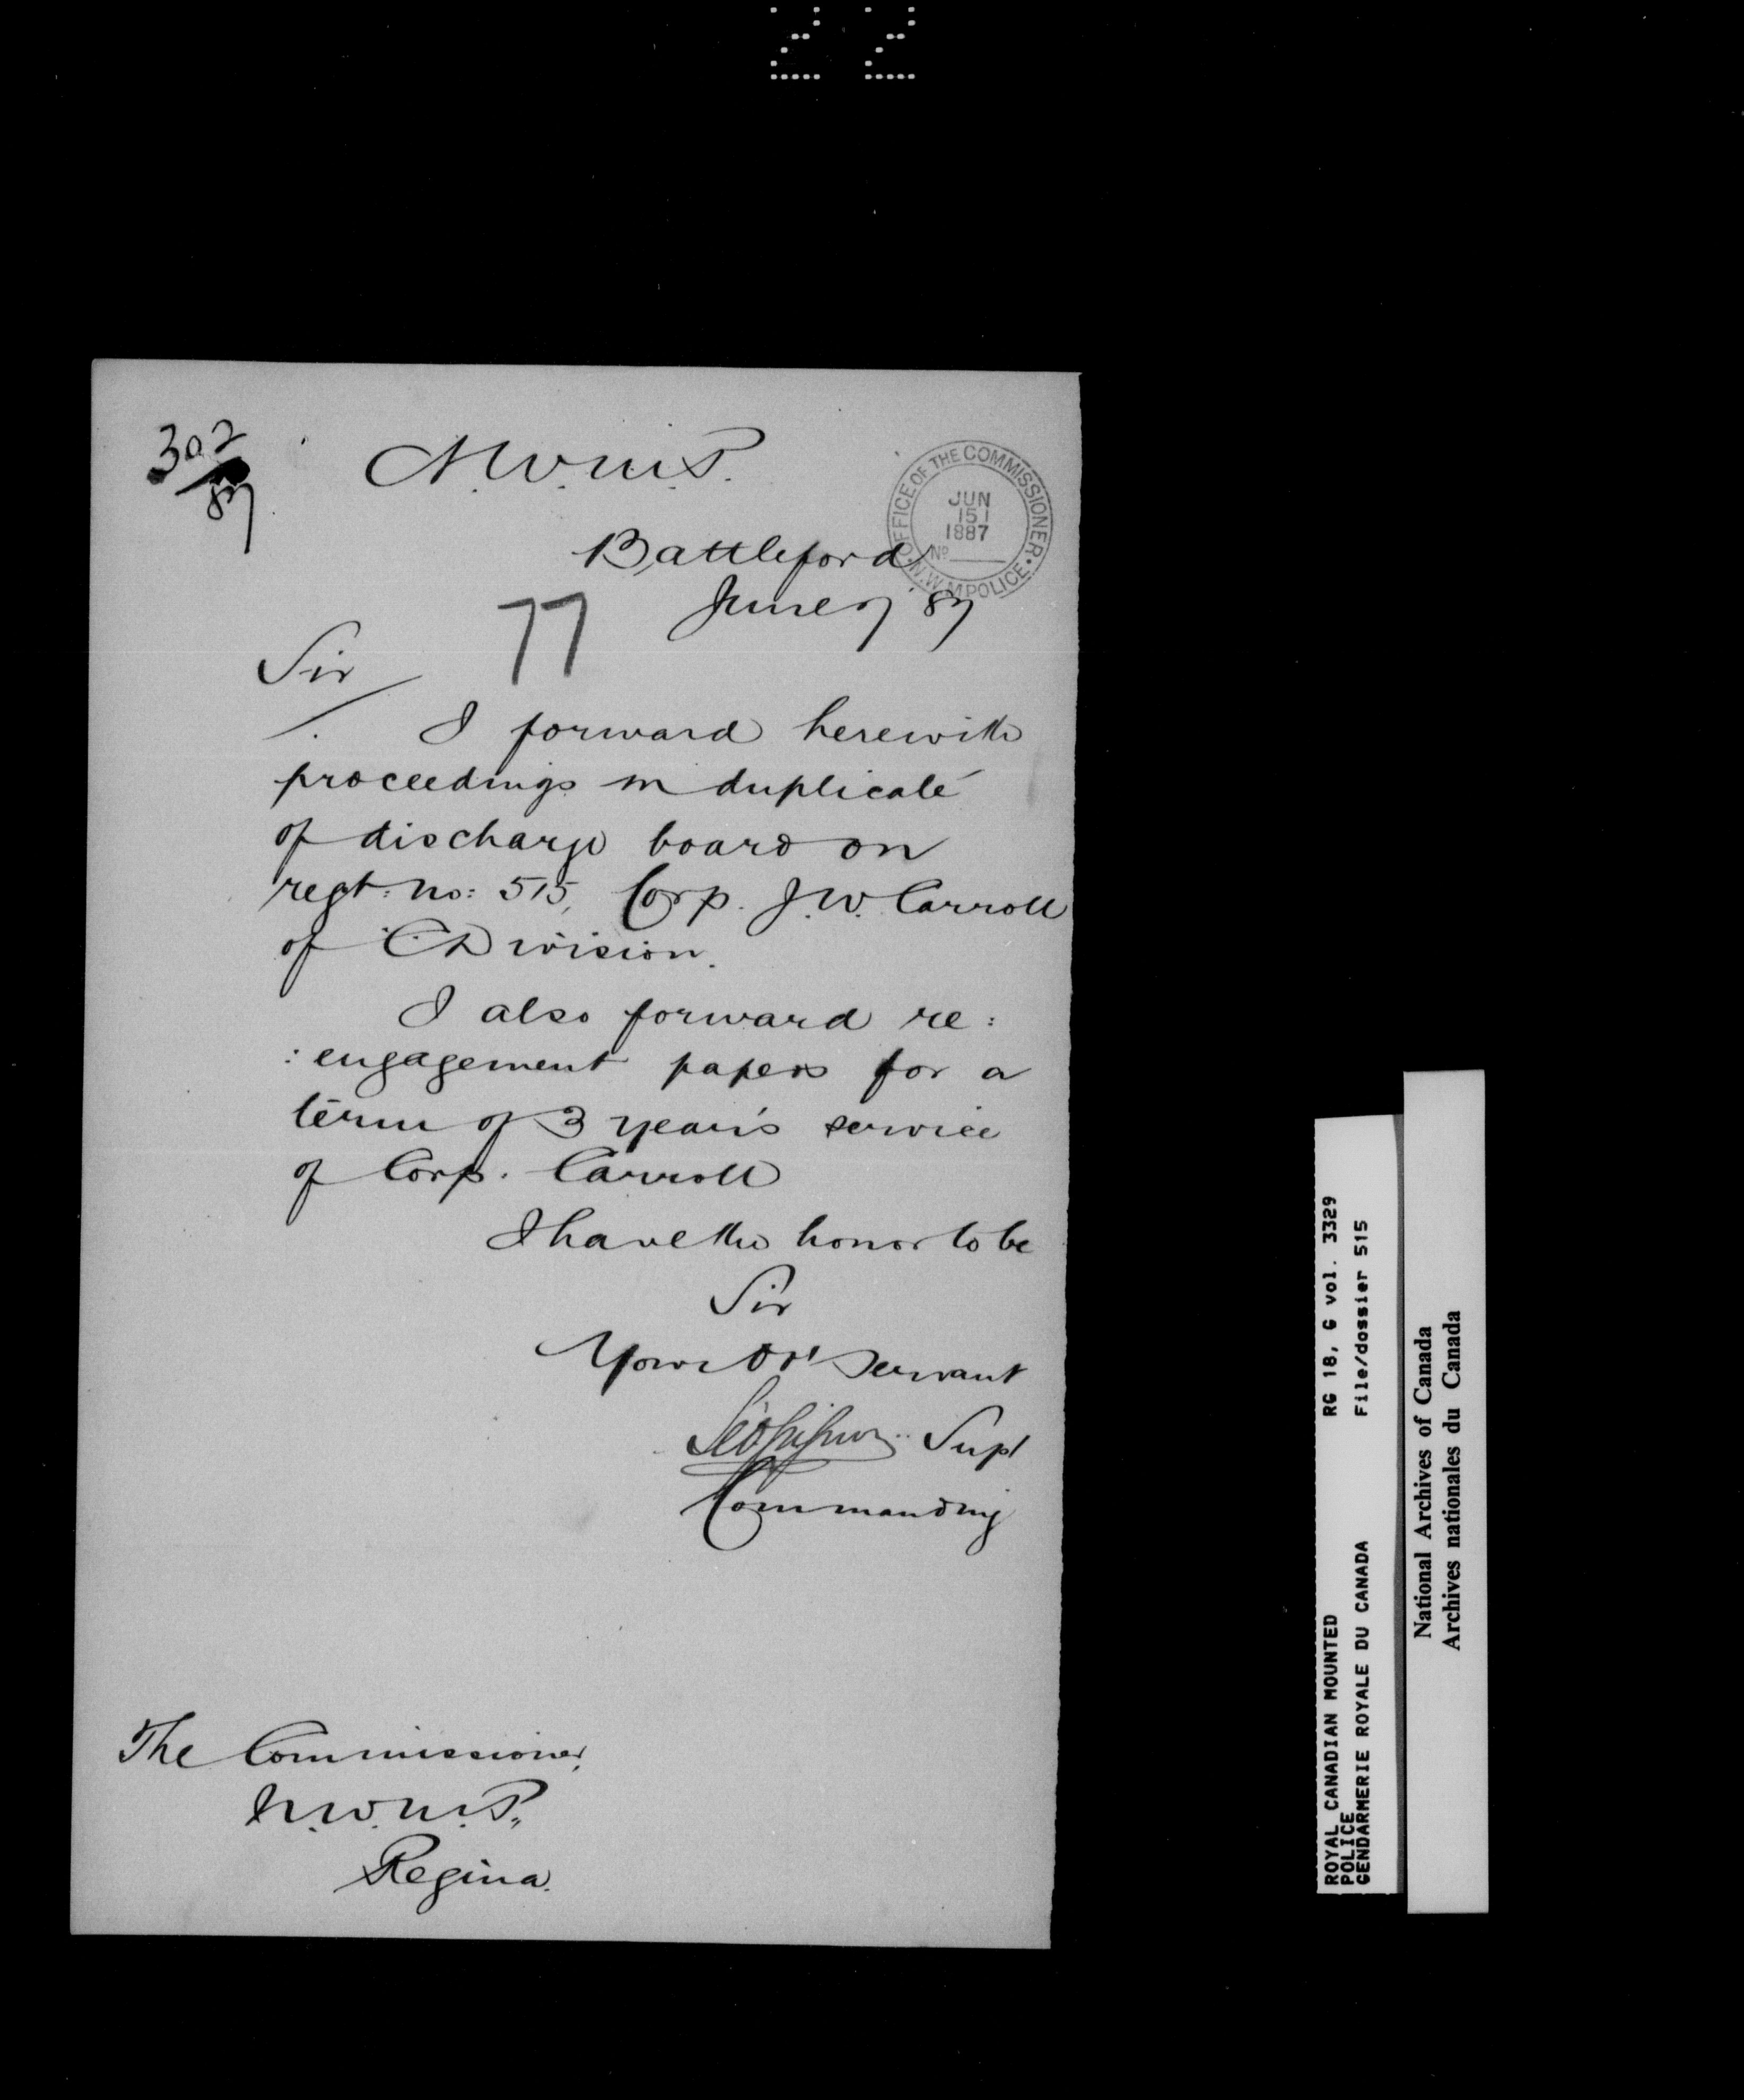 22
302
87
N.W.M.P.
OFFICE OF THE COMMISSIONER • N.W.M POLICE •
JUN
15
1887
No
Battleford
June 7 '87
77
Sir
I forward herewith
proceedings in duplicate
of discharge board on
regt: no: 515, Corp. J.W. Carroll
of "C" Division.
I also forward re:
:engagement papers for a
term of 3 year's service
of Corp. Carroll
I have the honor to be
Sir
Your Ob' Servant
Supt
Commanding
The Commissioner,
N.W.M.P.,
Regina.
ROYAL CANADIAN MOUNTED
POLICE
GENDARMERIE ROYALE DU CANADA
RG 18, G vol. 3329
File/dossier 515
National Archives of Canada
Archives nationales du Canada